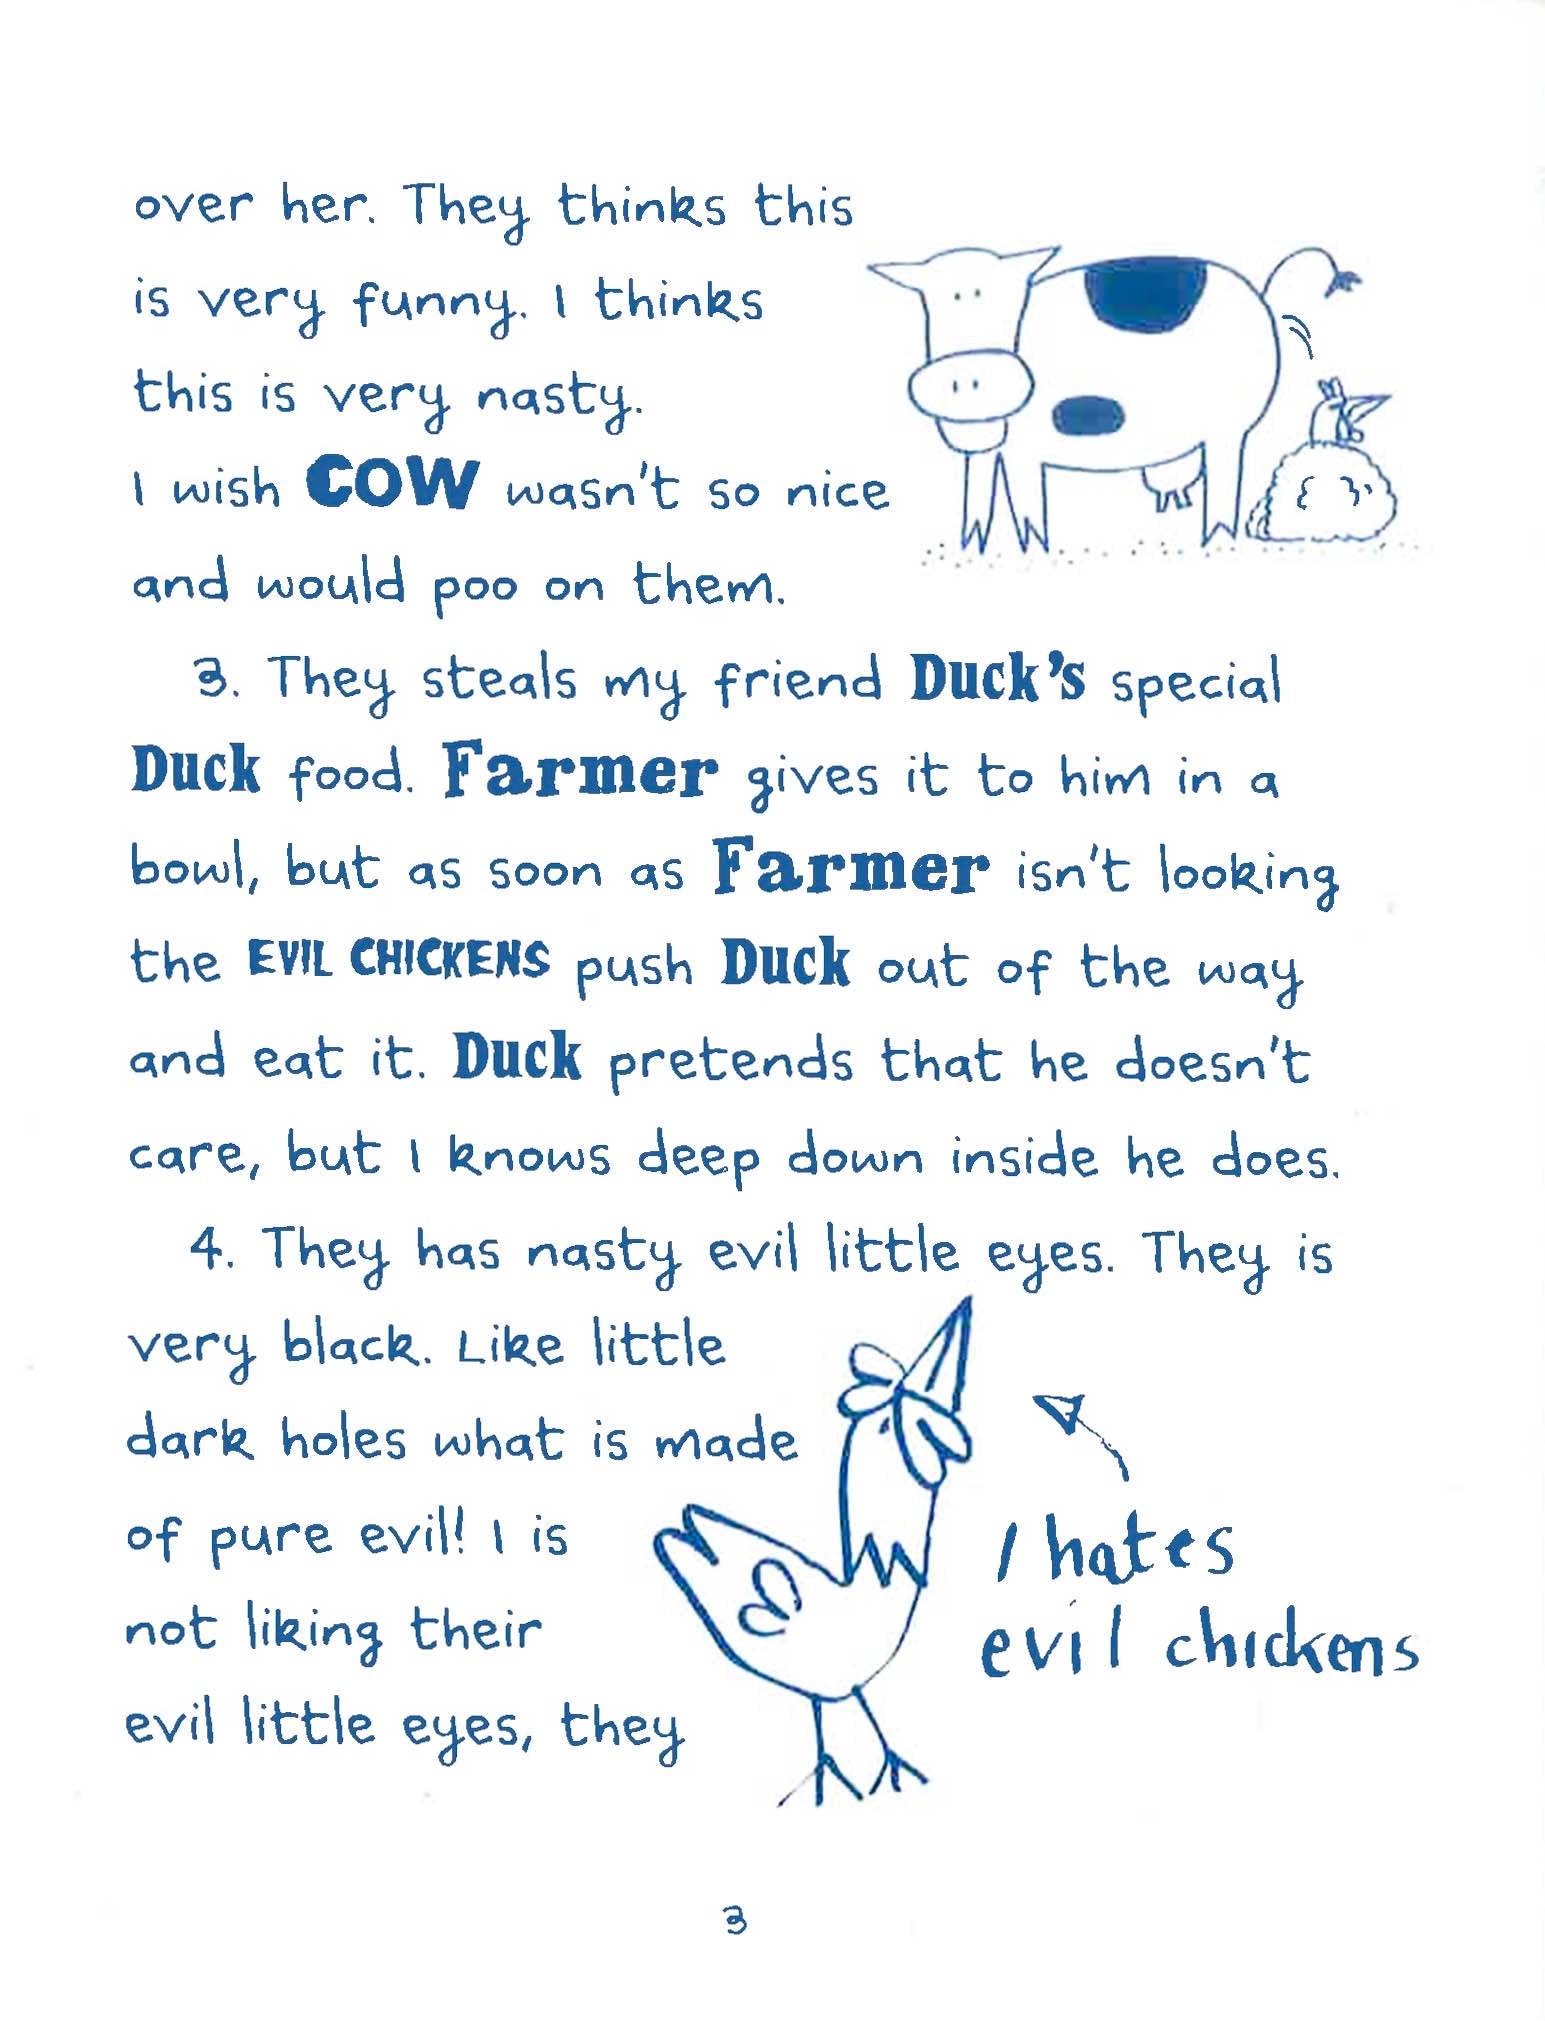 over her. They thinks this
is very funny. I thinks
this is very nasty.
I wish COW wasn't so nice
and would poo on them.
3. They steals my friend Duck's special
Duck food. Farmer gives it to him in a
bowl, but as soon as Farmer isn't looking
the EVIL CHICKENS push Duck out of the way
and eat it. Duck pretends that he doesn't
care, but I knows deep down inside he does.
4. They has nasty evil little eyes. They is
very black. Like little
dark holes what is made
of pure evil! I is
not liking their
evil little eyes, they
I hates
evil chickens
3